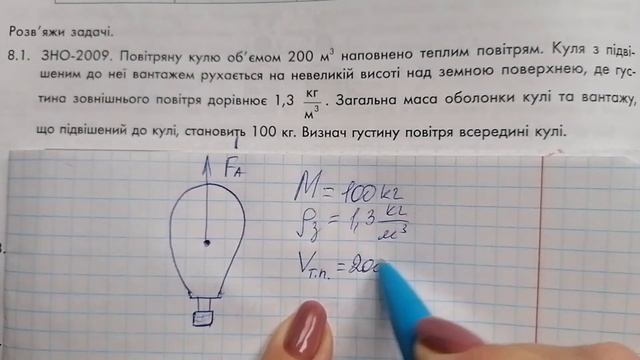 Розв'яжи задачі.
8.1. ЗНО-2009. Повітряну кулю об'ємом 200 м³ наповнено теплим повітрям. Куля з підві-
шеним до неї вантажем рухається на невеликій висоті над земною поверхнею, де гус-
тина зовнішнього повітря дорівнює 1,3 кг/м³. Загальна маса оболонки кулі та вантажу,
що підвішений до кулі, становить 100 кг. Визнач густину повітря всередині кулі.
F_A
M = 100 кг
ρ_з = 1,3 кг/м³
V_т.п. = 200